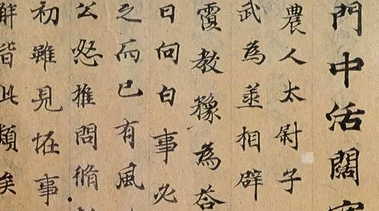 門中活闊
農人太尉子
武為丞相辟
覆教豫為答
日向白事必
之而已有風
公怒推問脩
初雖見怪事
解皆此類矣